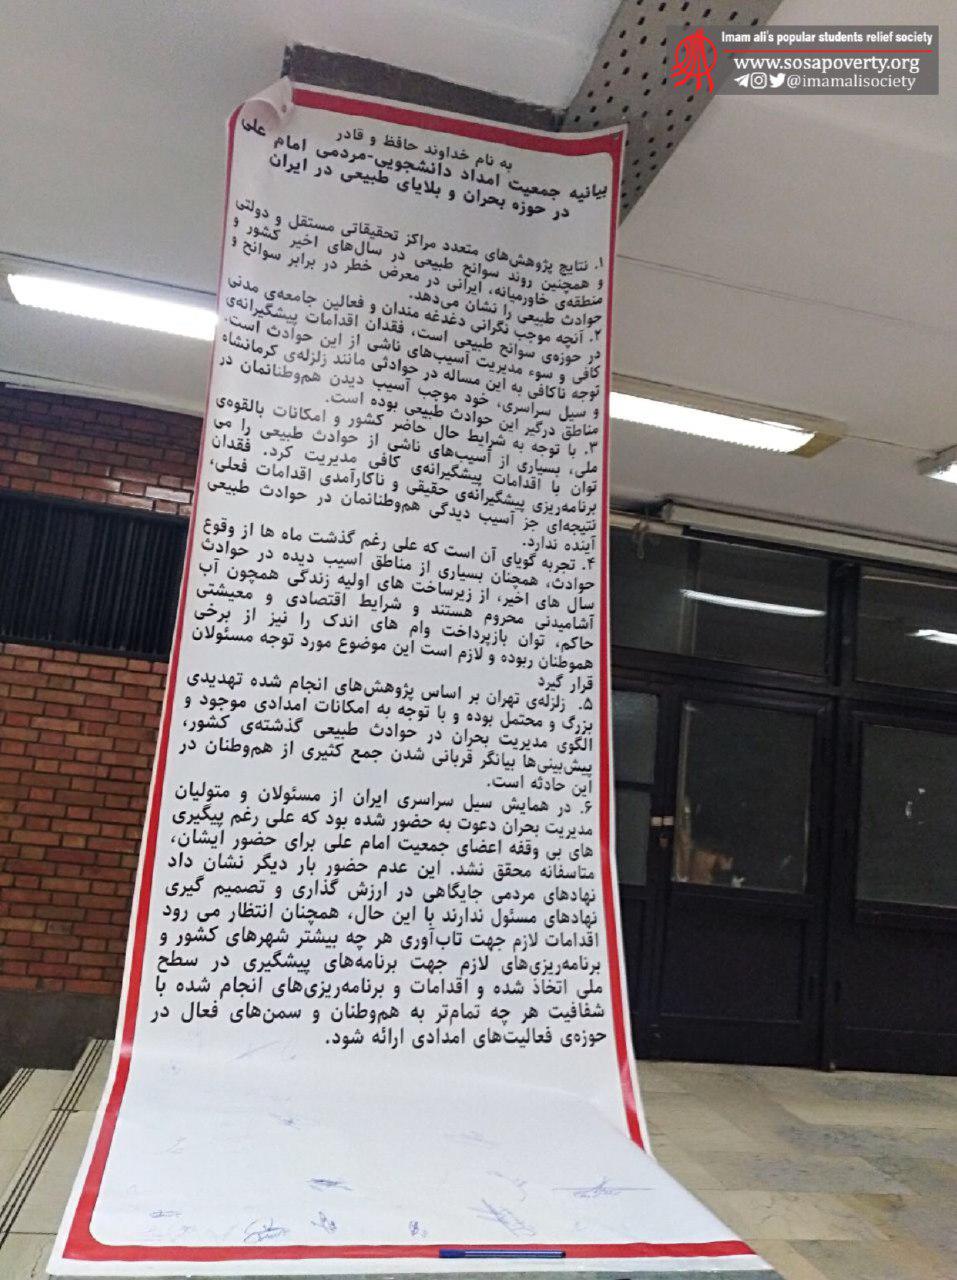 Imam ali's popular students relief society
www.sosapoverty.org
@imamalisociety
به نام خداوند حافظ و قادر
بیانیه جمعیت امداد دانشجویی-مردمی امام علی
در حوزه بحران و بلایای طبیعی در ایران
۱. نتایج پژوهش‌های متعدد مراکز تحقیقاتی مستقل و دولتی
و همچنین روند سوانح طبیعی در سال‌های اخیر کشور و
منطقه‌ی خاورمیانه، ایرانی در معرض خطر در برابر سوانح و
حوادث طبیعی را نشان می‌دهد.
۲. آنچه موجب نگرانی دغدغه مندان و فعالین جامعه‌ی مدنی
در حوزه‌ی سوانح طبیعی است، فقدان اقدامات پیشگیرانه‌ی
کافی و سوء مدیریت آسیب‌های ناشی از این حوادث است.
توجه ناکافی به این مساله در حوادثی مانند زلزله‌ی کرمانشاه
و سیل سراسری، خود موجب آسیب دیدن هم‌وطنانمان در
مناطق درگیر این حوادث طبیعی بوده است.
۳. با توجه به شرایط حال حاضر کشور و امکانات بالقوه‌ی
ملی، بسیاری از آسیب‌های ناشی از حوادث طبیعی را می
توان با اقدامات پیشگیرانه‌ی کافی مدیریت کرد. فقدان
برنامه‌ریزی پیشگیرانه‌ی حقیقی و ناکارآمدی اقدامات فعلی،
نتیجه‌ای جز آسیب دیدگی هم‌وطنانمان در حوادث طبیعی
آینده ندارد.
۴. تجربه گویای آن است که علی رغم گذشت ماه ها از وقوع
حوادث، همچنان بسیاری از مناطق آسیب دیده در حوادث
سال های اخیر، از زیرساخت های اولیه زندگی همچون آب
آشامیدنی محروم هستند و شرایط اقتصادی و معیشتی
حاکم، توان بازپرداخت وام های اندک را نیز از برخی
هموطنان ربوده و لازم است این موضوع مورد توجه مسئولان
قرار گیرد
۵. زلزله‌ی تهران بر اساس پژوهش‌های انجام شده تهدیدی
بزرگ و محتمل بوده و با توجه به امکانات امدادی موجود و
الگوی مدیریت بحران در حوادث طبیعی گذشته‌ی کشور،
پیش‌بینی‌ها بیانگر قربانی شدن جمع کثیری از هم‌وطنان در
این حادثه است.
۶. در همایش سیل سراسری ایران از مسئولان و متولیان
مدیریت بحران دعوت به حضور شده بود که علی رغم پیگیری
های بی وقفه اعضای جمعیت امام علی برای حضور ایشان،
متاسفانه محقق نشد. این عدم حضور بار دیگر نشان داد
نهادهای مردمی جایگاهی در ارزش گذاری و تصمیم گیری
نهادهای مسئول ندارند با این حال، همچنان انتظار می رود
اقدامات لازم جهت تاب‌آوری هر چه بیشتر شهرهای کشور و
برنامه‌ریزی‌های لازم جهت برنامه‌های پیشگیری در سطح
ملی اتخاذ شده و اقدامات و برنامه‌ریزی‌های انجام شده با
شفافیت هر چه تمام‌تر به هم‌وطنان و سمن‌های فعال در
حوزه‌ی فعالیت‌های امدادی ارائه شود.